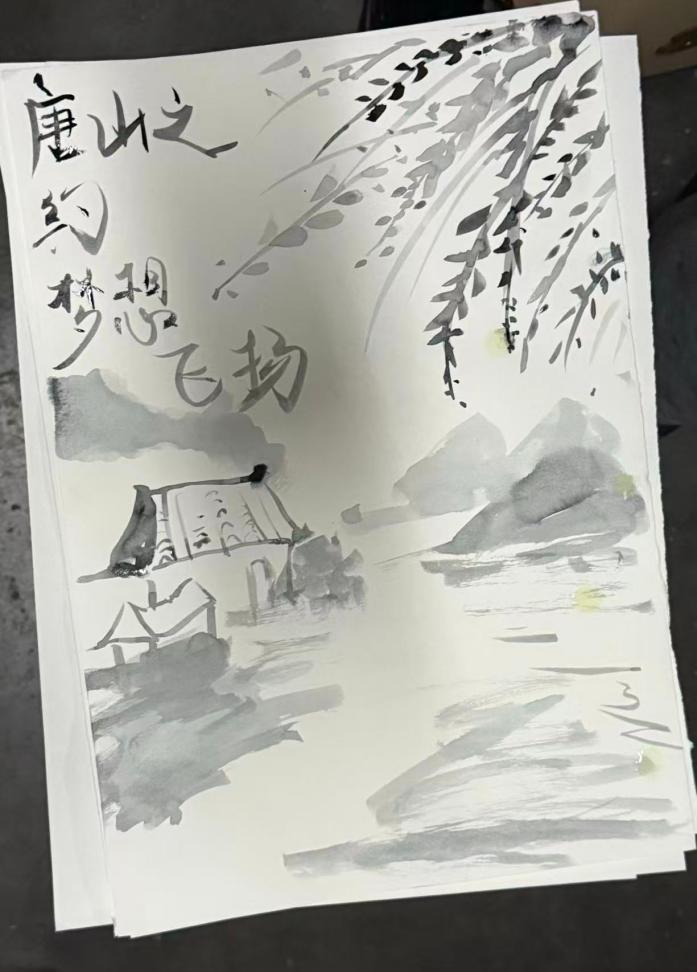 唐山之
约
梦想
飞扬